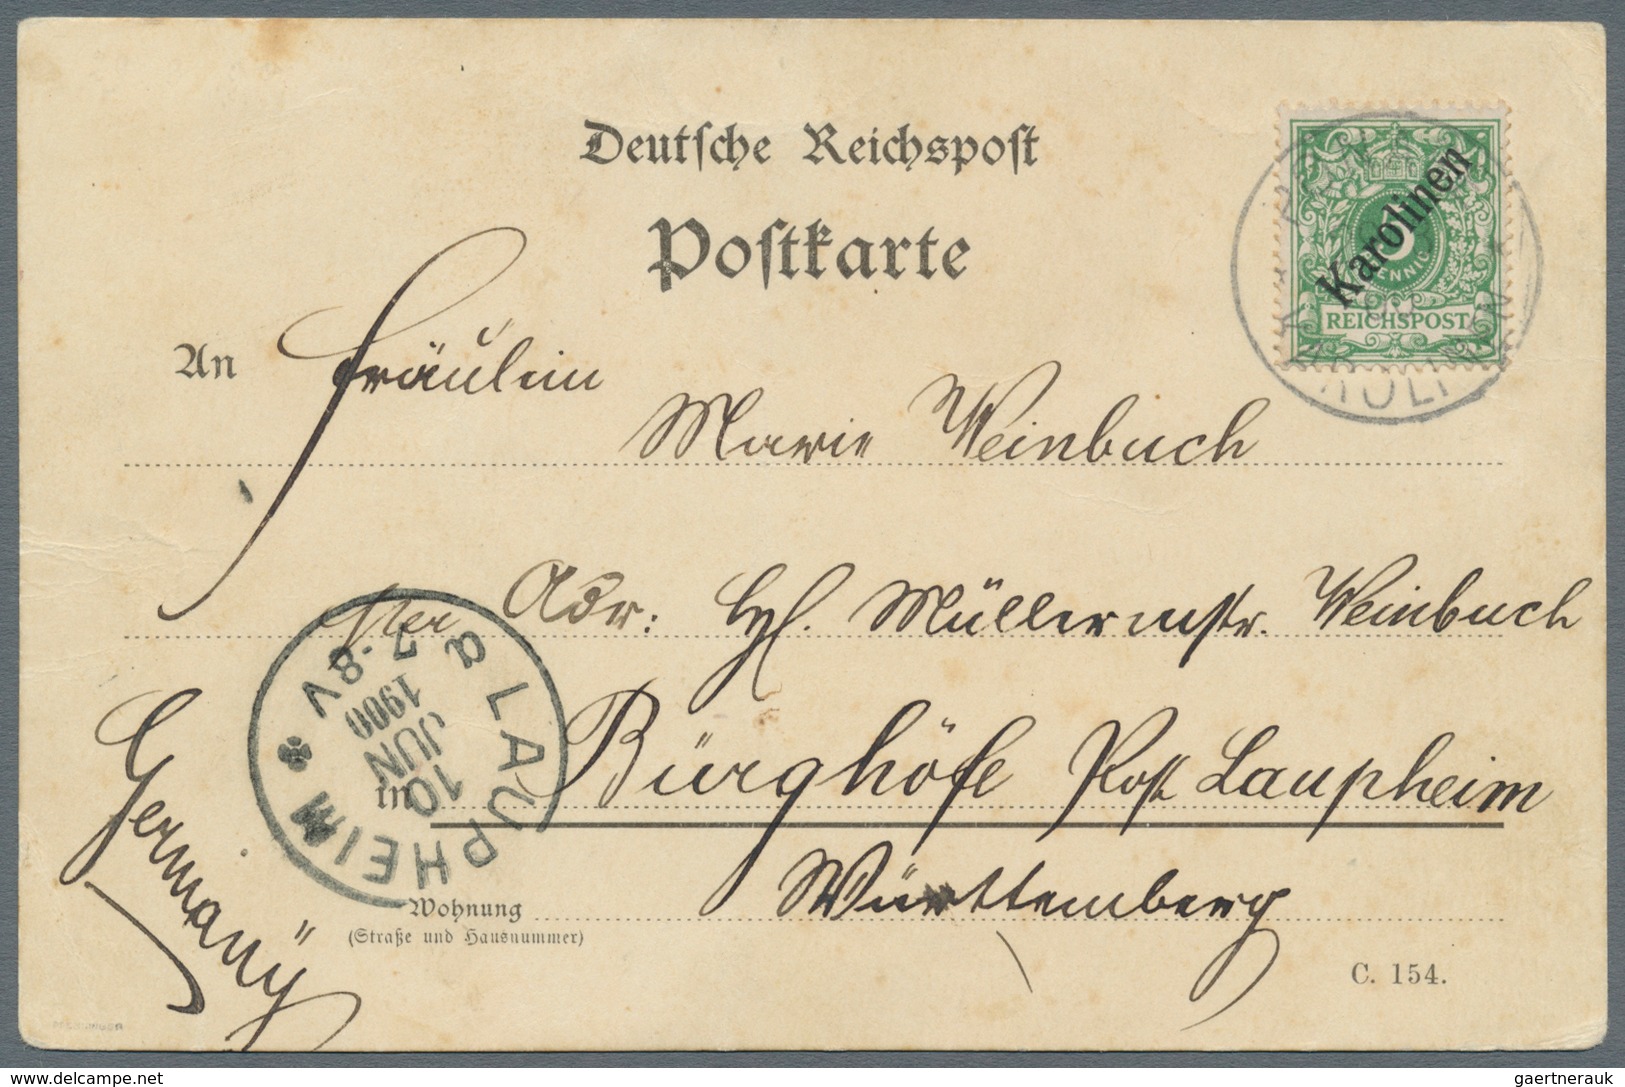 Deutsche Reichspost
Postkarte
Karolinen
5
PFENNIG
REICHSPOST
KAROLINEN
An Fräulein
Marie Weinbuch
Adr: Hl. Müllermstr. Weinbuch
a LAUPHEIM
7-8V
1900
JUN
10
in Bürghöfe Post Laupheim
Württemberg
Wohnung
(Straße und Hausnummer)
Germany
C. 154.
www.delcampe.net
gaertnerauk